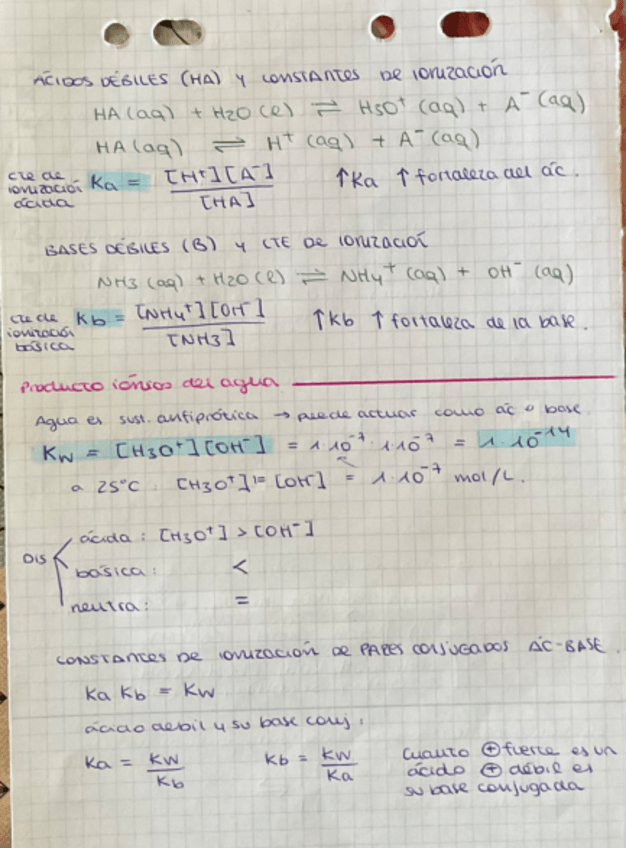 ÁCIDOS DÉBILES (HA) Y CONSTANTES DE IONIZACIÓN
HA (aq) + H2O (l) ⇌ H3O⁺ (aq) + A⁻ (aq)
HA (aq) ⇌ H⁺ (aq) + A⁻ (aq)
cte de ionización ácida Ka = [H⁺][A⁻] / [HA] ↑Ka ↑ fortaleza del ác.
BASES DÉBILES (B) Y CTE DE IONIZACIÓN
NH3 (aq) + H2O (l) ⇌ NH4⁺ (aq) + OH⁻ (aq)
cte de ionización básica Kb = [NH4⁺][OH⁻] / [NH3] ↑Kb ↑ fortaleza de la base.
Producto iónico del agua
Agua es sust. antiprótica → puede actuar como ác o base.
Kw = [H3O⁺][OH⁻] = 1·10⁻⁷ · 1·10⁻⁷ = 1·10⁻¹⁴
a 25°C. [H3O⁺] = [OH⁻] = 1·10⁻⁷ mol/L.
DIS
ácida: [H3O⁺] > [OH⁻]
básica: <
neutra: =
CONSTANTES DE IONIZACIÓN DE PARES CONJUGADOS ÁC-BASE.
Ka Kb = Kw
ácido debil y su base conj:
Ka = Kw / Kb Kb = Kw / Ka
Cuanto ⊕ fuerte es un
ácido ⊕ débil es
su base conjugada